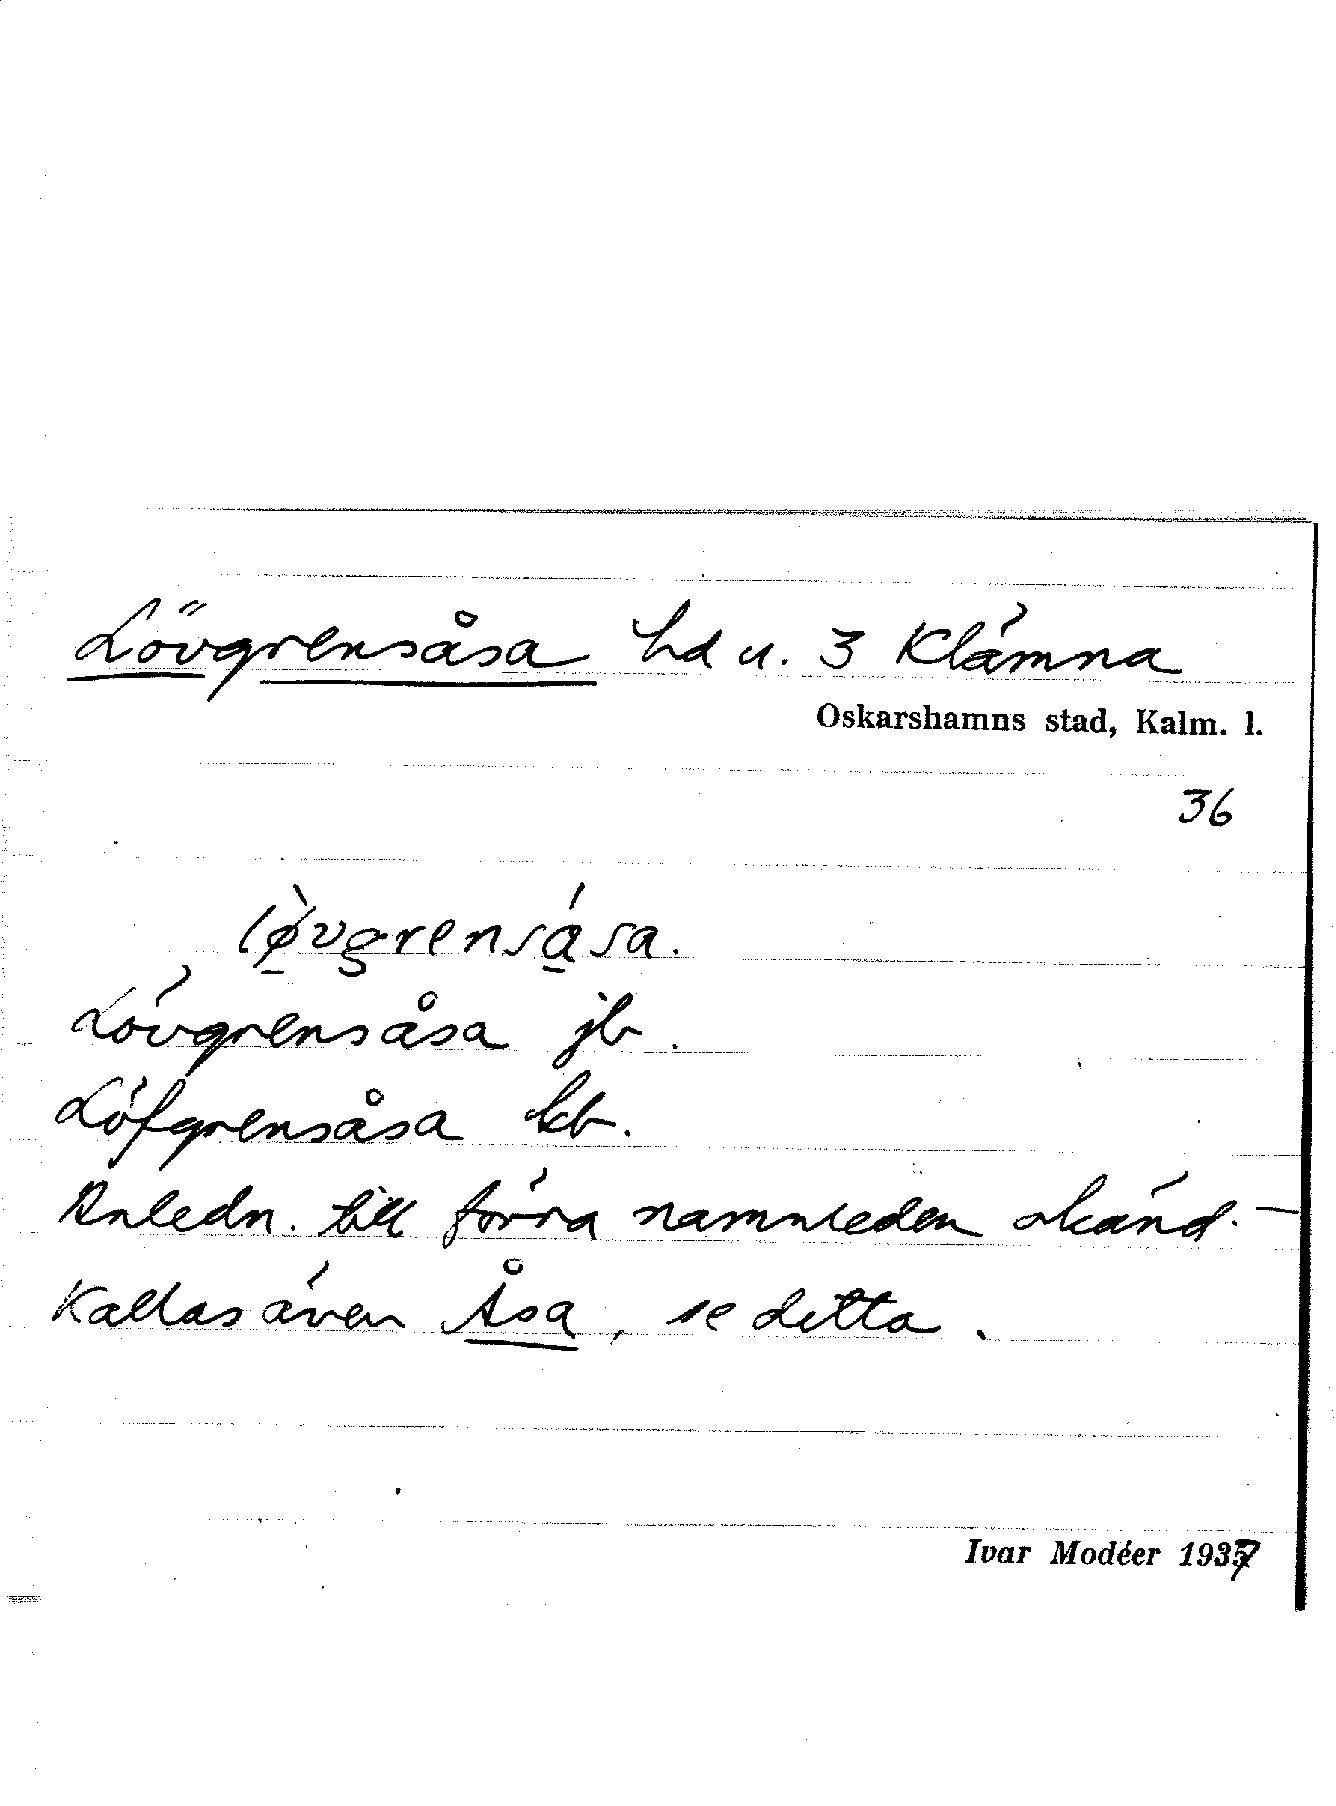 Lövgrensåsa hd u. 3 Klämna
Oskarshamns stad, Kalm. l.
36
lø̀vgrensása.
Lövgrensåsa jb.
Löfgrensåsa kb.
Anledn. till förra namnleden okänd. —
Kallas även Åsa, se detta.
Ivar Modéer 1937